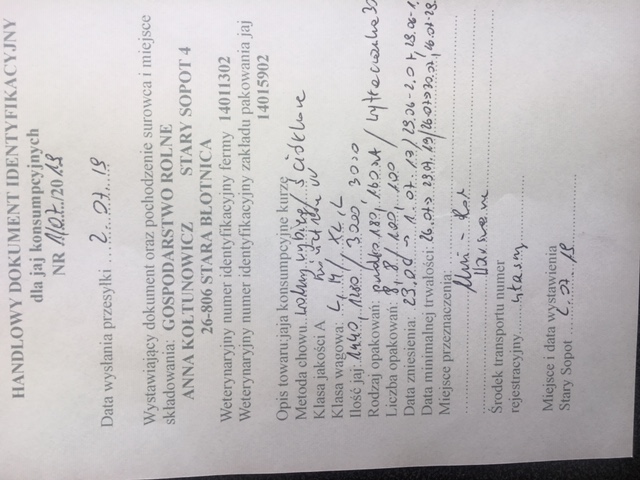 HANDLOWY DOKUMENT IDENTYFIKACYJNY
dla jaj konsumpcyjnych
NR 1/07/2019
Data wysłania przesyłki 2.07.19
Wystawiający dokument oraz pochodzenie surowca i miejsce
składowania: GOSPODARSTWO ROLNE
ANNA KOŁTUNOWICZ STARY SOPOT 4
26-806 STARA BŁOTNICA
Weterynaryjny numer identyfikacyjny fermy 14011302
Weterynaryjny numer identyfikacyjny zakładu pakowania jaj
14015902
Opis towaru:jaja konsumpcyjne kurze
Metoda chowu: wolny wybieg / ściółkowe
Klasa jakości A
Klasa wagowa: L, M / XL, L
Ilość jaj: 1440, 1280 / 3000, 3000
Rodzaj opakowań: 180, 160 / wytłaczanka 30
Liczba opakowań: 8, 8 / 100, 100
Data zniesienia: 29.06 → 1.07.19 / 29.06-2.07, 29.06-1.
Data minimalnej trwałości: 26.07 → 29.07.19 / 26.07 → 30.07, 26.07-29.
Miejsce przeznaczenia:
Warszawa
Środek transportu numer
rejestracyjny własny
Miejsce i data wystawienia
Stary Sopot 2.07.19